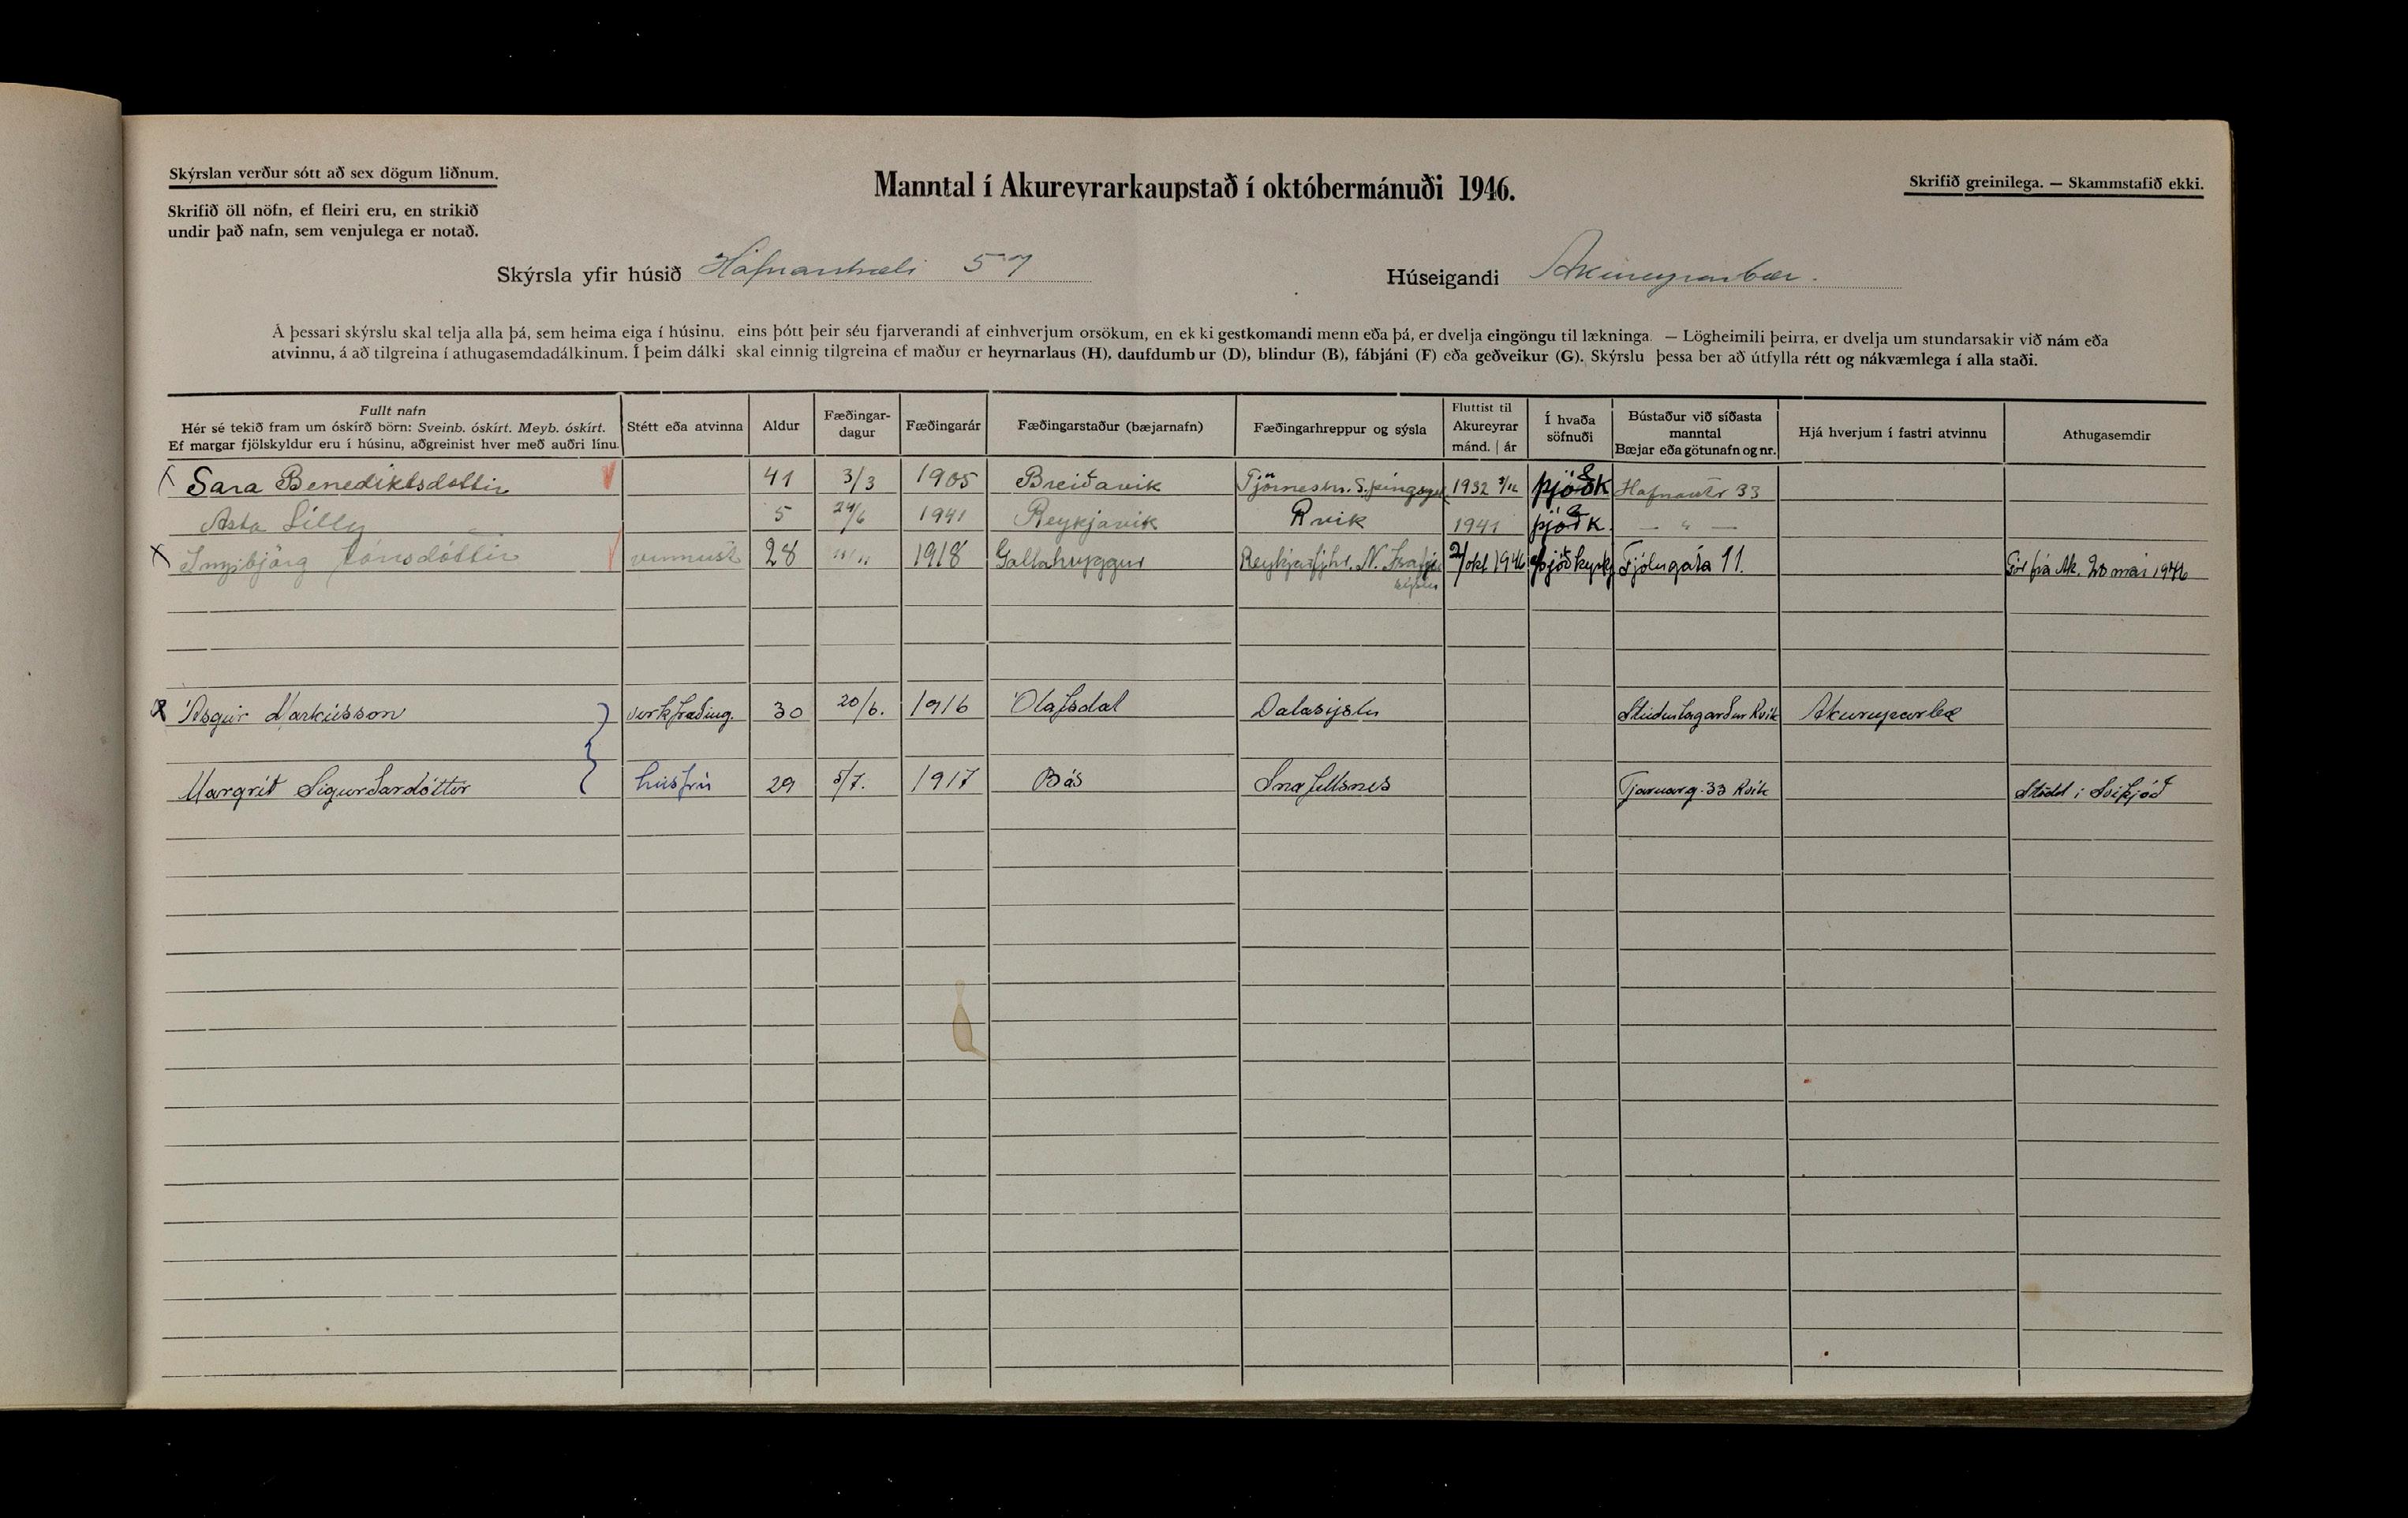 Skýrslan verður sótt að sex dögum liðnum.
Skrifið öll nöfn, ef fleiri eru, en strikið
undir það nafn, sem venjulega er notað.
Manntal í Akureyrarkaupstað í októbermánuði 1946.
Skrifið greinilega. — Skammstafið ekki.
Skýrsla yfir húsið Hafnarstræti 57
Húseigandi Akureyrarbær.
Á þessari skýrslu skal telja alla þá, sem heima eiga í húsinu, eins þótt þeir séu fjarverandi af einhverjum orsökum, en ekki gestkomandi menn eða þá, er dvelja eingöngu til lækninga. — Lögheimili þeirra, er dvelja um stundarsakir við nám eða
atvinnu, á að tilgreina í athugasemdadálkinum. Í þeim dálki skal einnig tilgreina ef maður er heyrnarlaus (H), daufdumbur (D), blindur (B), fábjáni (F) eða geðveikur (G). Skýrslu þessa ber að útfylla rétt og nákvæmlega í alla staði.
Fullt nafn
Hér sé tekið fram um óskírð börn: Sveinb. óskírt. Meyb. óskírt.
Ef margar fjölskyldur eru í húsinu, aðgreinist hver með auðri línu.
Stétt eða atvinna
Aldur
Fæðingar-
dagur
Fæðingarár
Fæðingarstaður (bæjarnafn)
Fæðingarhreppur og sýsla
Fluttist til
Akureyrar
mánd. | ár
Í hvaða
söfnuði
Bústaður við síðasta
manntal
Bæjar eða götunafn og nr.
Hjá hverjum í fastri atvinnu
Athugasemdir
Sara Benediktsdóttir 41 3/3 1905 Breiðavik Tjörneshr. S. þingeyj 1932 þjóðk Hafnastr 33
Asta Lilly 5 24/6 1941 Reykjavik Rvik 1941 þjóðk. — " —
Ingibjörg Jónsdóttir vinnust 28 1918 Galtahryggur Reykjarfjhr. N. Ísafj. 2/okt 1946 þjóðkyrkj Fjólugáta 11. Fór frá Ak. 20 mai 1946
sýslu
Ásgeir Markússon verkfræðing. 30 20/6. 1916 Ólafsdal Dalasýslu Stúdentagarður Rvík Akureyrarbæ
Margrét Sigurðardóttir húsfrú 29 5/7. 1917 Bás Snæfellsnes Tjarnarg. 33 Rvík Stödd í Sviþjóð